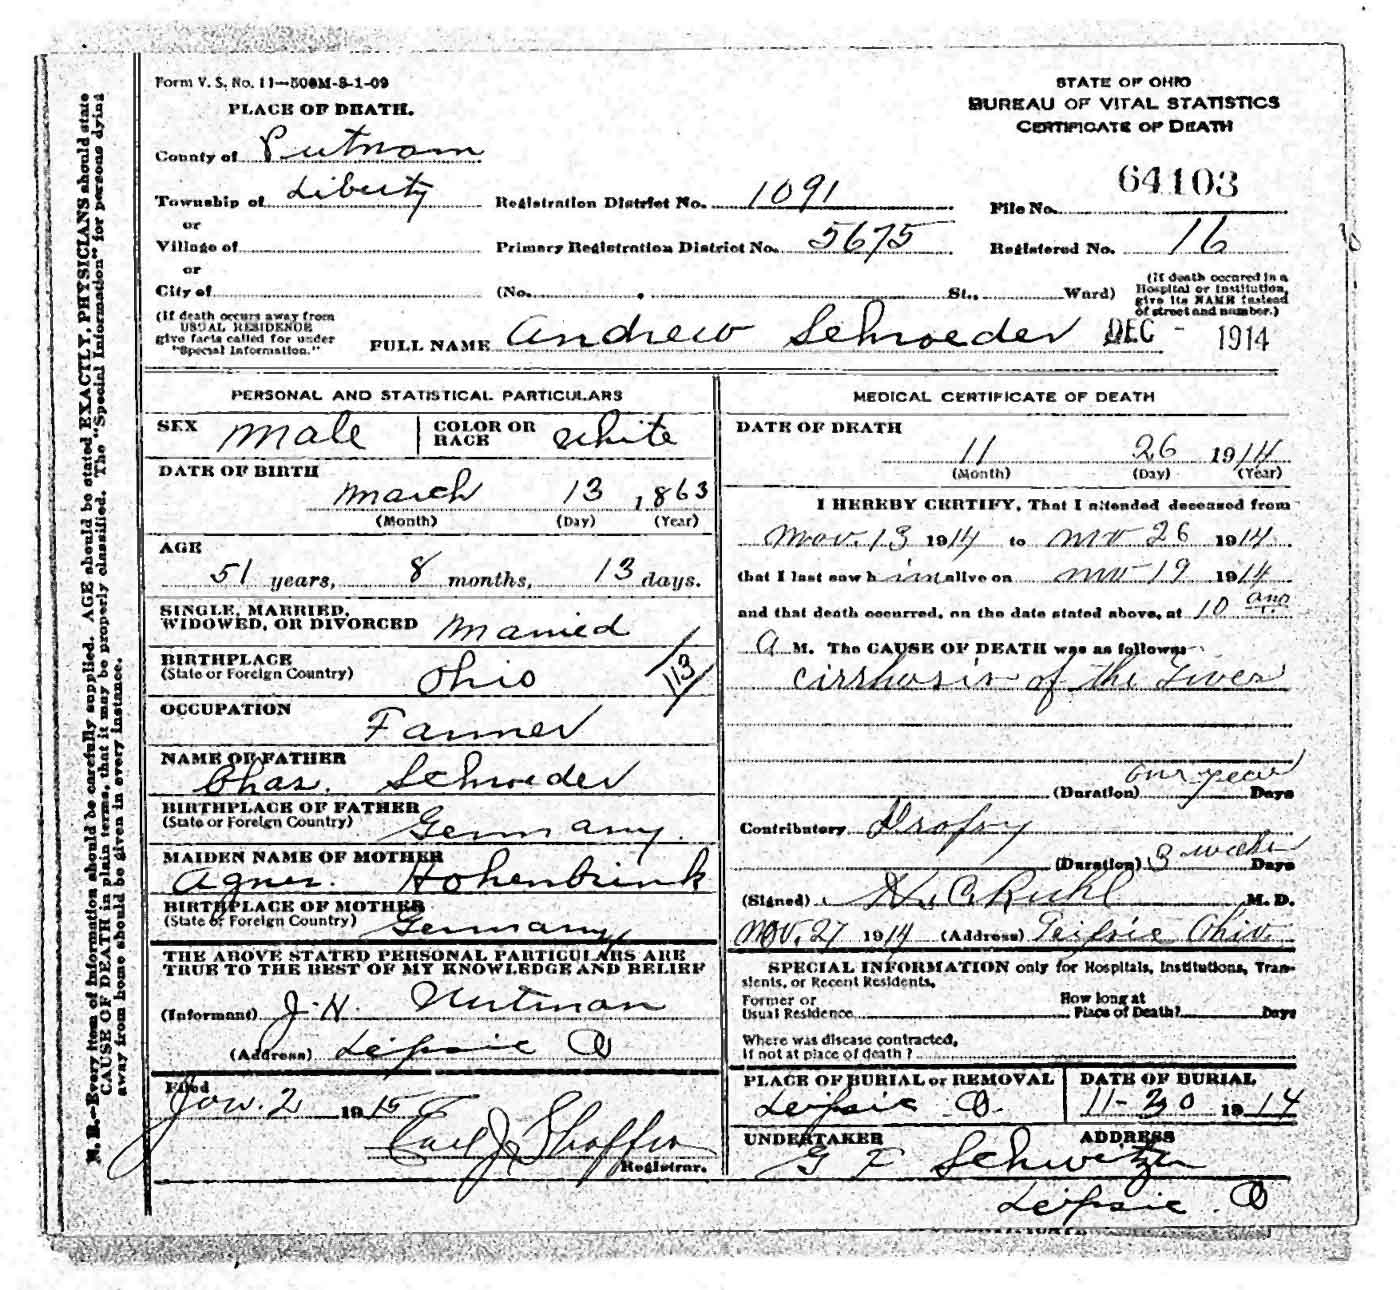 Form V. S. No. 11—500M-8-1-09
PLACE OF DEATH.
STATE OF OHIO
BUREAU OF VITAL STATISTICS
CERTIFICATE OF DEATH
County of Putnam
Township of Liberty
Registration District No. 1091
File No. 64103
or
Village of
Primary Registration District No. 5675
Registered No. 16
or
City of
(No. St., Ward)
(If death occured in a
Hospital or Institution,
give its NAME instead
of street and number.)
(If death occurs away from
USUAL RESIDENCE
give facts called for under
"Special Information.")
FULL NAME Andrew Schroeder DEC - 1914
PERSONAL AND STATISTICAL PARTICULARS
SEX Male
COLOR OR RACE White
DATE OF BIRTH
March 13 1863
(Month) (Day) (Year)
AGE
51 years, 8 months, 13 days.
SINGLE, MARRIED,
WIDOWED, OR DIVORCED Married
BIRTHPLACE
(State or Foreign Country) Ohio
113
OCCUPATION
Farmer
NAME OF FATHER
Chas. Schroeder
BIRTHPLACE OF FATHER
(State or Foreign Country) Germany.
MAIDEN NAME OF MOTHER
Agnes. Hohenbrink
BIRTHPLACE OF MOTHER
(State or Foreign Country) Germany
THE ABOVE STATED PERSONAL PARTICULARS ARE
TRUE TO THE BEST OF MY KNOWLEDGE AND BELIEF
(Informant) J. H.
(Address) Leipsic O
Filed
Jan. 2 1915
Carl J.
Registrar.
MEDICAL CERTIFICATE OF DEATH
DATE OF DEATH
11 26 1914
(Month) (Day) (Year)
I HEREBY CERTIFY, That I attended deceased from
Nov. 13 1914 to Nov 26 1914
that I last saw him alive on Nov 19 1914
and that death occurred, on the date stated above, at 10
A M. The CAUSE OF DEATH was as follows:
Cirrhosis of the Liver
one year
(Duration) Days
Contributory Dropsy
(Duration) 3 weeks Days
(Signed) M. D.
Nov. 27 1914 (Address) Leipsic Ohio.
SPECIAL INFORMATION only for Hospitals, Institutions, Tran-
sients, or Recent Residents.
Former or
Usual Residence
How long at
Place of Death? Days
Where was disease contracted,
if not at place of death?
PLACE OF BURIAL or REMOVAL
Leipsic O.
DATE OF BURIAL
11-30 1914
UNDERTAKER
ADDRESS
G F
Leipsic O
N. B.—Every item of information should be carefully supplied. AGE should be stated EXACTLY. PHYSICIANS should state
CAUSE OF DEATH in plain terms, that it may be properly classified. The "Special Information" for persons dying
away from home should be given in every instance.